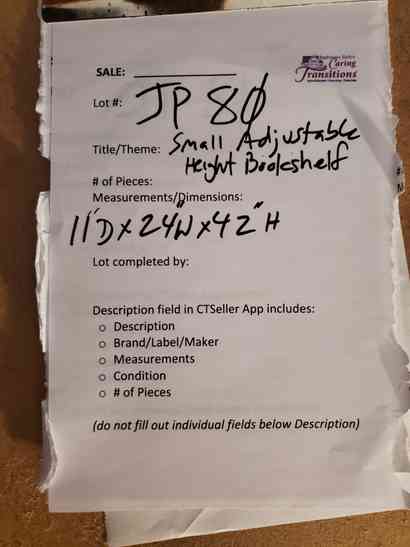 Caring
Transitions
SALE:
Lot #: JP 80
Title/Theme: Small Adjustable
Height Bookshelf
# of Pieces:
Measurements/Dimensions:
11"D x 24"W x 42"H
Lot completed by:
Description field in CTSeller App includes:
o Description
o Brand/Label/Maker
o Measurements
o Condition
o # of Pieces
(do not fill out individual fields below Description)